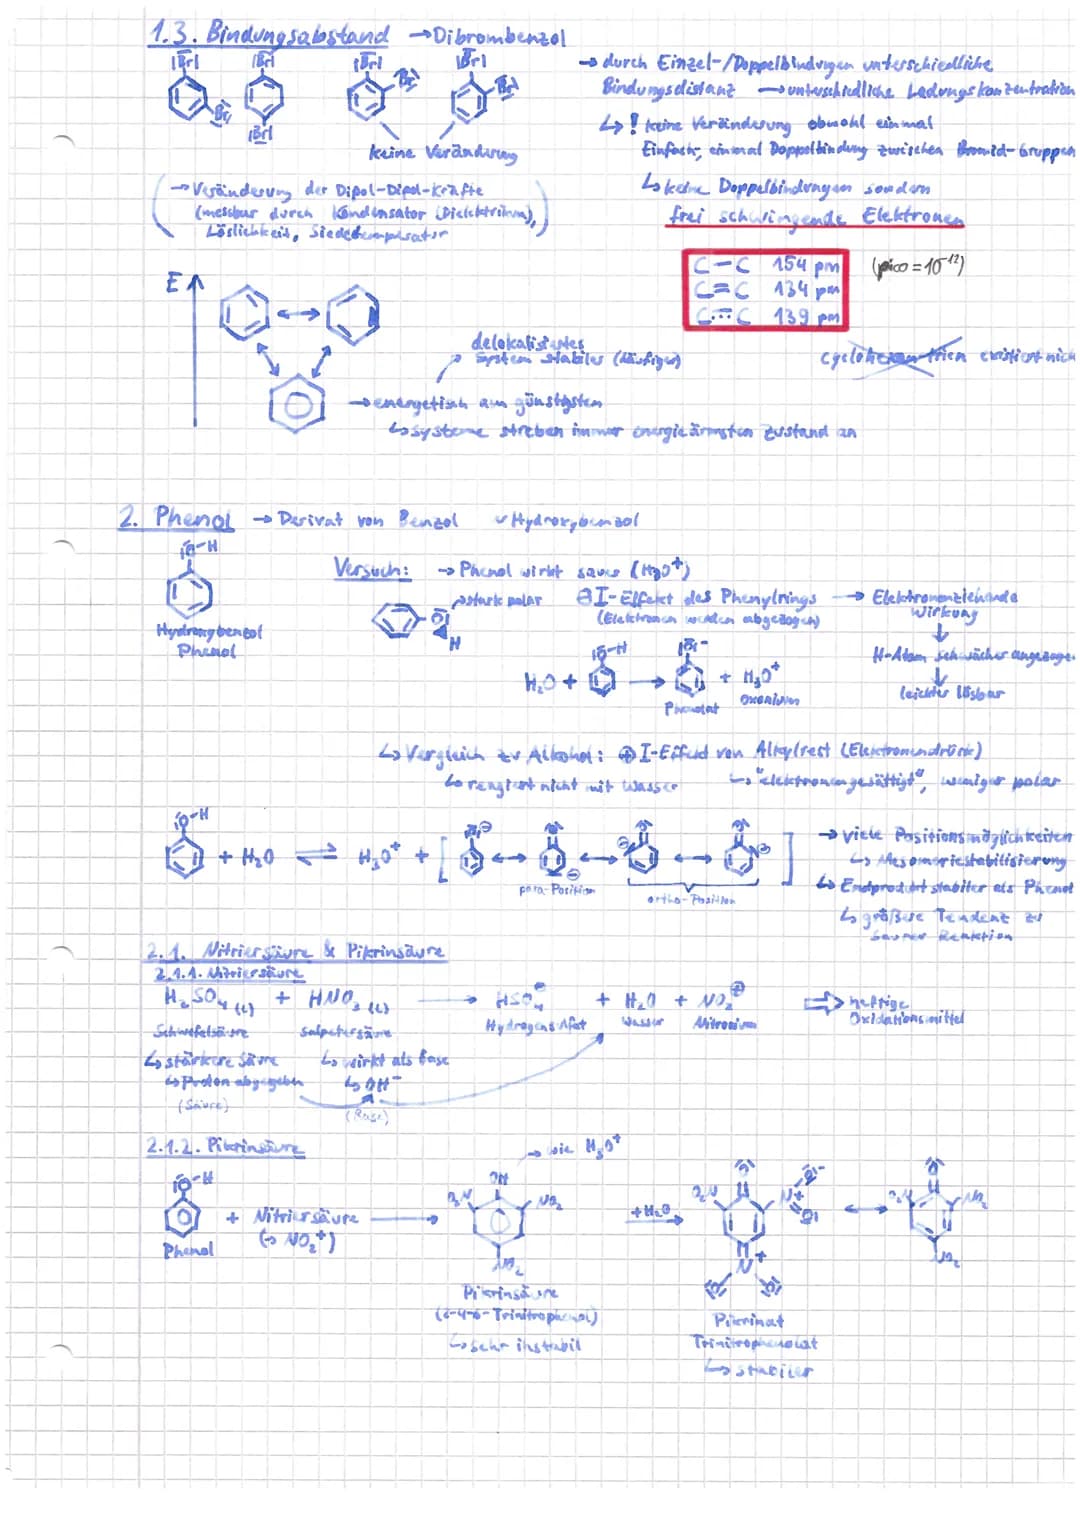 1.3. Bindungsabstand → Dibrombenzol
|Br| |Br| |Br| |Br|
Br Br Br
|Br|
keine Veränderung
→ durch Einzel-/Doppelbindungen unterschiedliche
Bindungsdistanz → unterschiedliche Ladungskonzentration
↳ ! keine Veränderung obwohl einmal
Einfach, einmal Doppelbindung zwischen Bromid-Gruppen
↳ keine Doppelbindungen sondern
frei schwingende Elektronen
(→ Veränderung der Dipol-Dipol-Kräfte
(messbar durch Kondensator (Dielektrikum),
Löslichkeit, Siedetemperatur)
C–C 154 pm (pico = 10⁻¹²)
C=C 134 pm
C⋯C 139 pm
E
delokalisiertes
System stabiler (häufiger)
existiert nich
→ energetisch am günstigsten
↳ Systeme streben immer energieärmsten Zustand an
2. Phenol → Derivat von Benzol Hydroxybenzol
O–H
Hydroxybenzol
Phenol
Versuch: → Phenol wirkt sauer (H₃O⁺)
→ stark polar
O
H
⊖I-Effekt des Phenylrings → Elektronenziehende
Wirkung
(Elektronen werden abgezogen)
H-Atom schwächer angezogen
leichter lösbar
H₂O + O–H → O⁻ + H₃O⁺
Phenolat Oxonium
↳ Vergleich zu Alkohol: ⊕I-Effekt von Alkylrest (Elektronendrück)
↳ reagiert nicht mit Wasser ↳ "elektronengesättigt", weniger polar
O–H + H₂O ⇌ H₃O⁺ + [ ↔ ↔ ↔ ]
para-Position
ortho-Position
→ viele Positionsmöglichkeiten
↳ Mesomeriestabilisierung
↳ Endprodukt stabiler als Phenol
↳ größere Tendenz zu
saurer Reaktion
2.1. Nitriersäure & Pikrinsäure
2.1.1. Nitriersäure
H₂SO₄ (l) + HNO₃ (l) → HSO₄⊖ + H₂O + NO₂⊕ ⇒ heftige
Oxidationsmittel
Schwefelsäure Salpetersäure Hydrogensulfat Wasser Nitronium
↳ stärkere Säure ↳ wirkt als Base
↳ Proton abgegeben ↳ OH⁻
(Säure) (Base)
2.1.2. Pikrinsäure
→ wie H₃O⁺
O–H
Phenol
+ Nitriersäure →
(→ NO₂⁺)
OH
O₂N NO₂
NO₂
Pikrinsäure
(2-4-6-Trinitrophenol)
↳ sehr instabil
+H₂O →
O₂N N⁺
N⁺
Pikrinat
Trinitrophenolat
↳ stabiler
↔
O₂N NO₂
NO₂